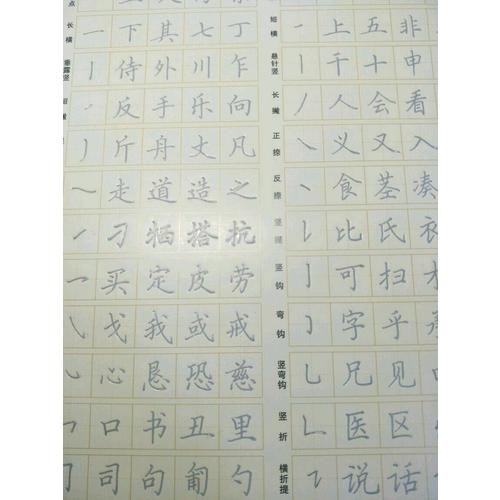 点
长横 一 下 其 七 丁
垂露竖 丨 侍 外 川 乍
短撇 反 手 乐 向
丿 斤 舟 丈 凡
走 道 造 之
刁 牺 搭 抗
买 定 皮 劳
戈 我 或 戒
心 恳 恐 慈
口 书 丑 里
司 句 匍 勺
短横 一 上 五 非
悬针竖 丨 千 十 申
长撇 丿 人 会 看
正捺 ㇏ 义 又 入
反捺 食 茎 凑
竖提 比 氏 衣
竖钩 亅 可 扫
弯钩 字 乎 承
竖弯钩 乚 兄 见
竖折 𠃊 医 区
横折提 说 话